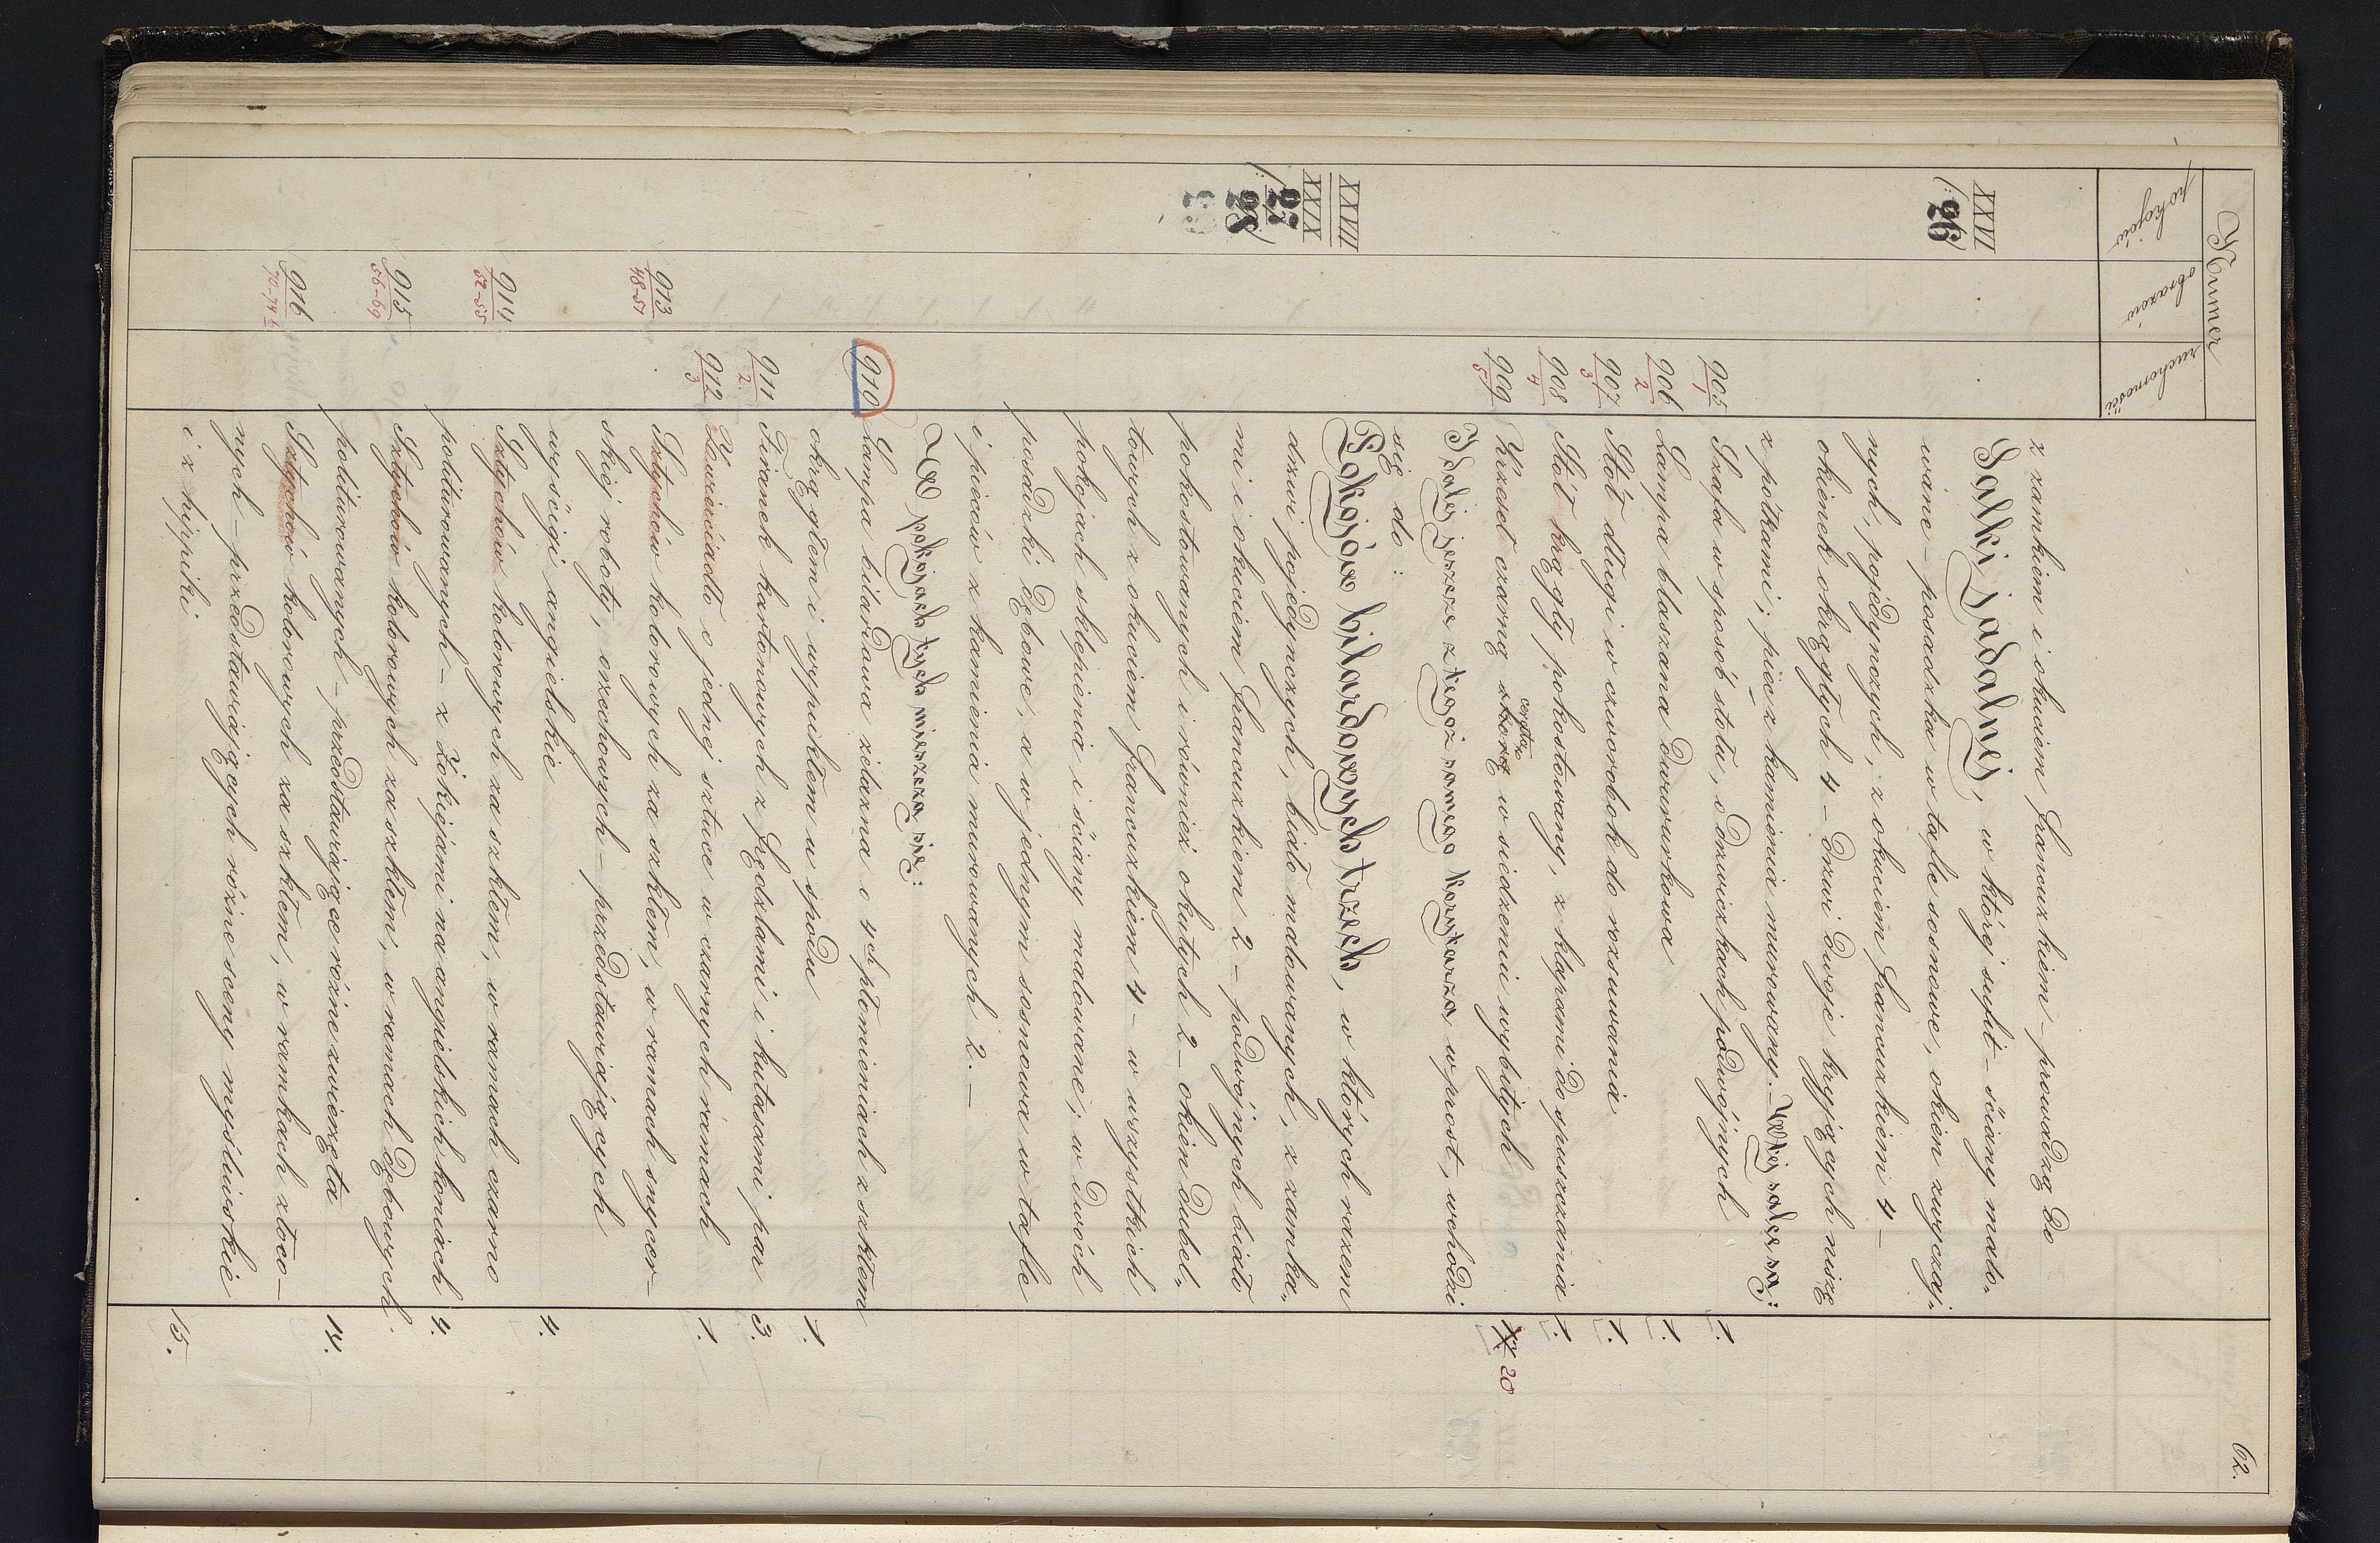 62.
Numer
pokojów obrazów ruchomości
z zamkiem i okuciem francuzkiem – prowadzą do
XXVI
/:26:/
Salki jadalnéj, w któréj sufit – ściany malo-
wane – posadzka w tafle sosnowe, okien zwyczaj-
nych, pojedynczych, z okuciem francuzkiem 4 –
okienek okrągłych 4 – drzwi dwoje kryjących niszę
z półkami; piec z kamienia murowany. – W téj salce są:
905 1 Szafa w sposób stołu, o drzwiczkach podwójnych 1.
906 2 Lampa blaszana dwururkowa 1.
907 3 Stół długi w czworobok do rozsuwania 1.
908 4 Stół krągły pokostowany, z klapami do spuszczania 1.
909 5 Krzeseł czarną skorą w siedzeniu wybitych 20
I daléj jeszcze z tegoż samego korytarza wprost, wchodzi
się do:
XXVII
XXIX
/:27
28:/
Pokojów bilardowych trzech, w których razem
drzwi pojedynczych, biało malowanych, z zamka-
mi i okuciem francuzkiem 2 – podwójnych biało
pokostowanych i również okutych 2 – okien dubel-
towych z okuciem francuzkiem 4 – w wszystkich
pokojach sklepienia i ściany malowane; w dwóch
posadzki dębowe, a w jednym sosnowa w tafle
i pieców z kamienia murowanych 2. –
W pokojach tych mieszczą się:
910 Lampa bilardowa żelazna o 4ch płomieniach z szkłem
okrągłem i wypukłem u spodu 1.
911 2 Firanek kartonowych z frędzlami i kutasami par 3.
912 3 Zwierciadło o jednej sztuce w czarnych ramach 1.
913 48-51 Sztychów kolorowych za szkłem, w ramach snycer-
skiéj roboty, orzechowych – przedstawiających
wyścigi angielskie 4.
914 52-55 Sztychów kolorowych za szkłem, w ramach czarno
politurowanych – z żokiejami na angielskich koniach 4.
915 56-69 Sztychów kolorowych za szkłem, w ramach dębowych
politurowanych – przedstawiające różne zwierzęta 14.
916 Sztychów kolorowych za szkłem, w ramkach złoco-
nych – przedstawiających różne sceny myśliwskie
i z hippiki 15.